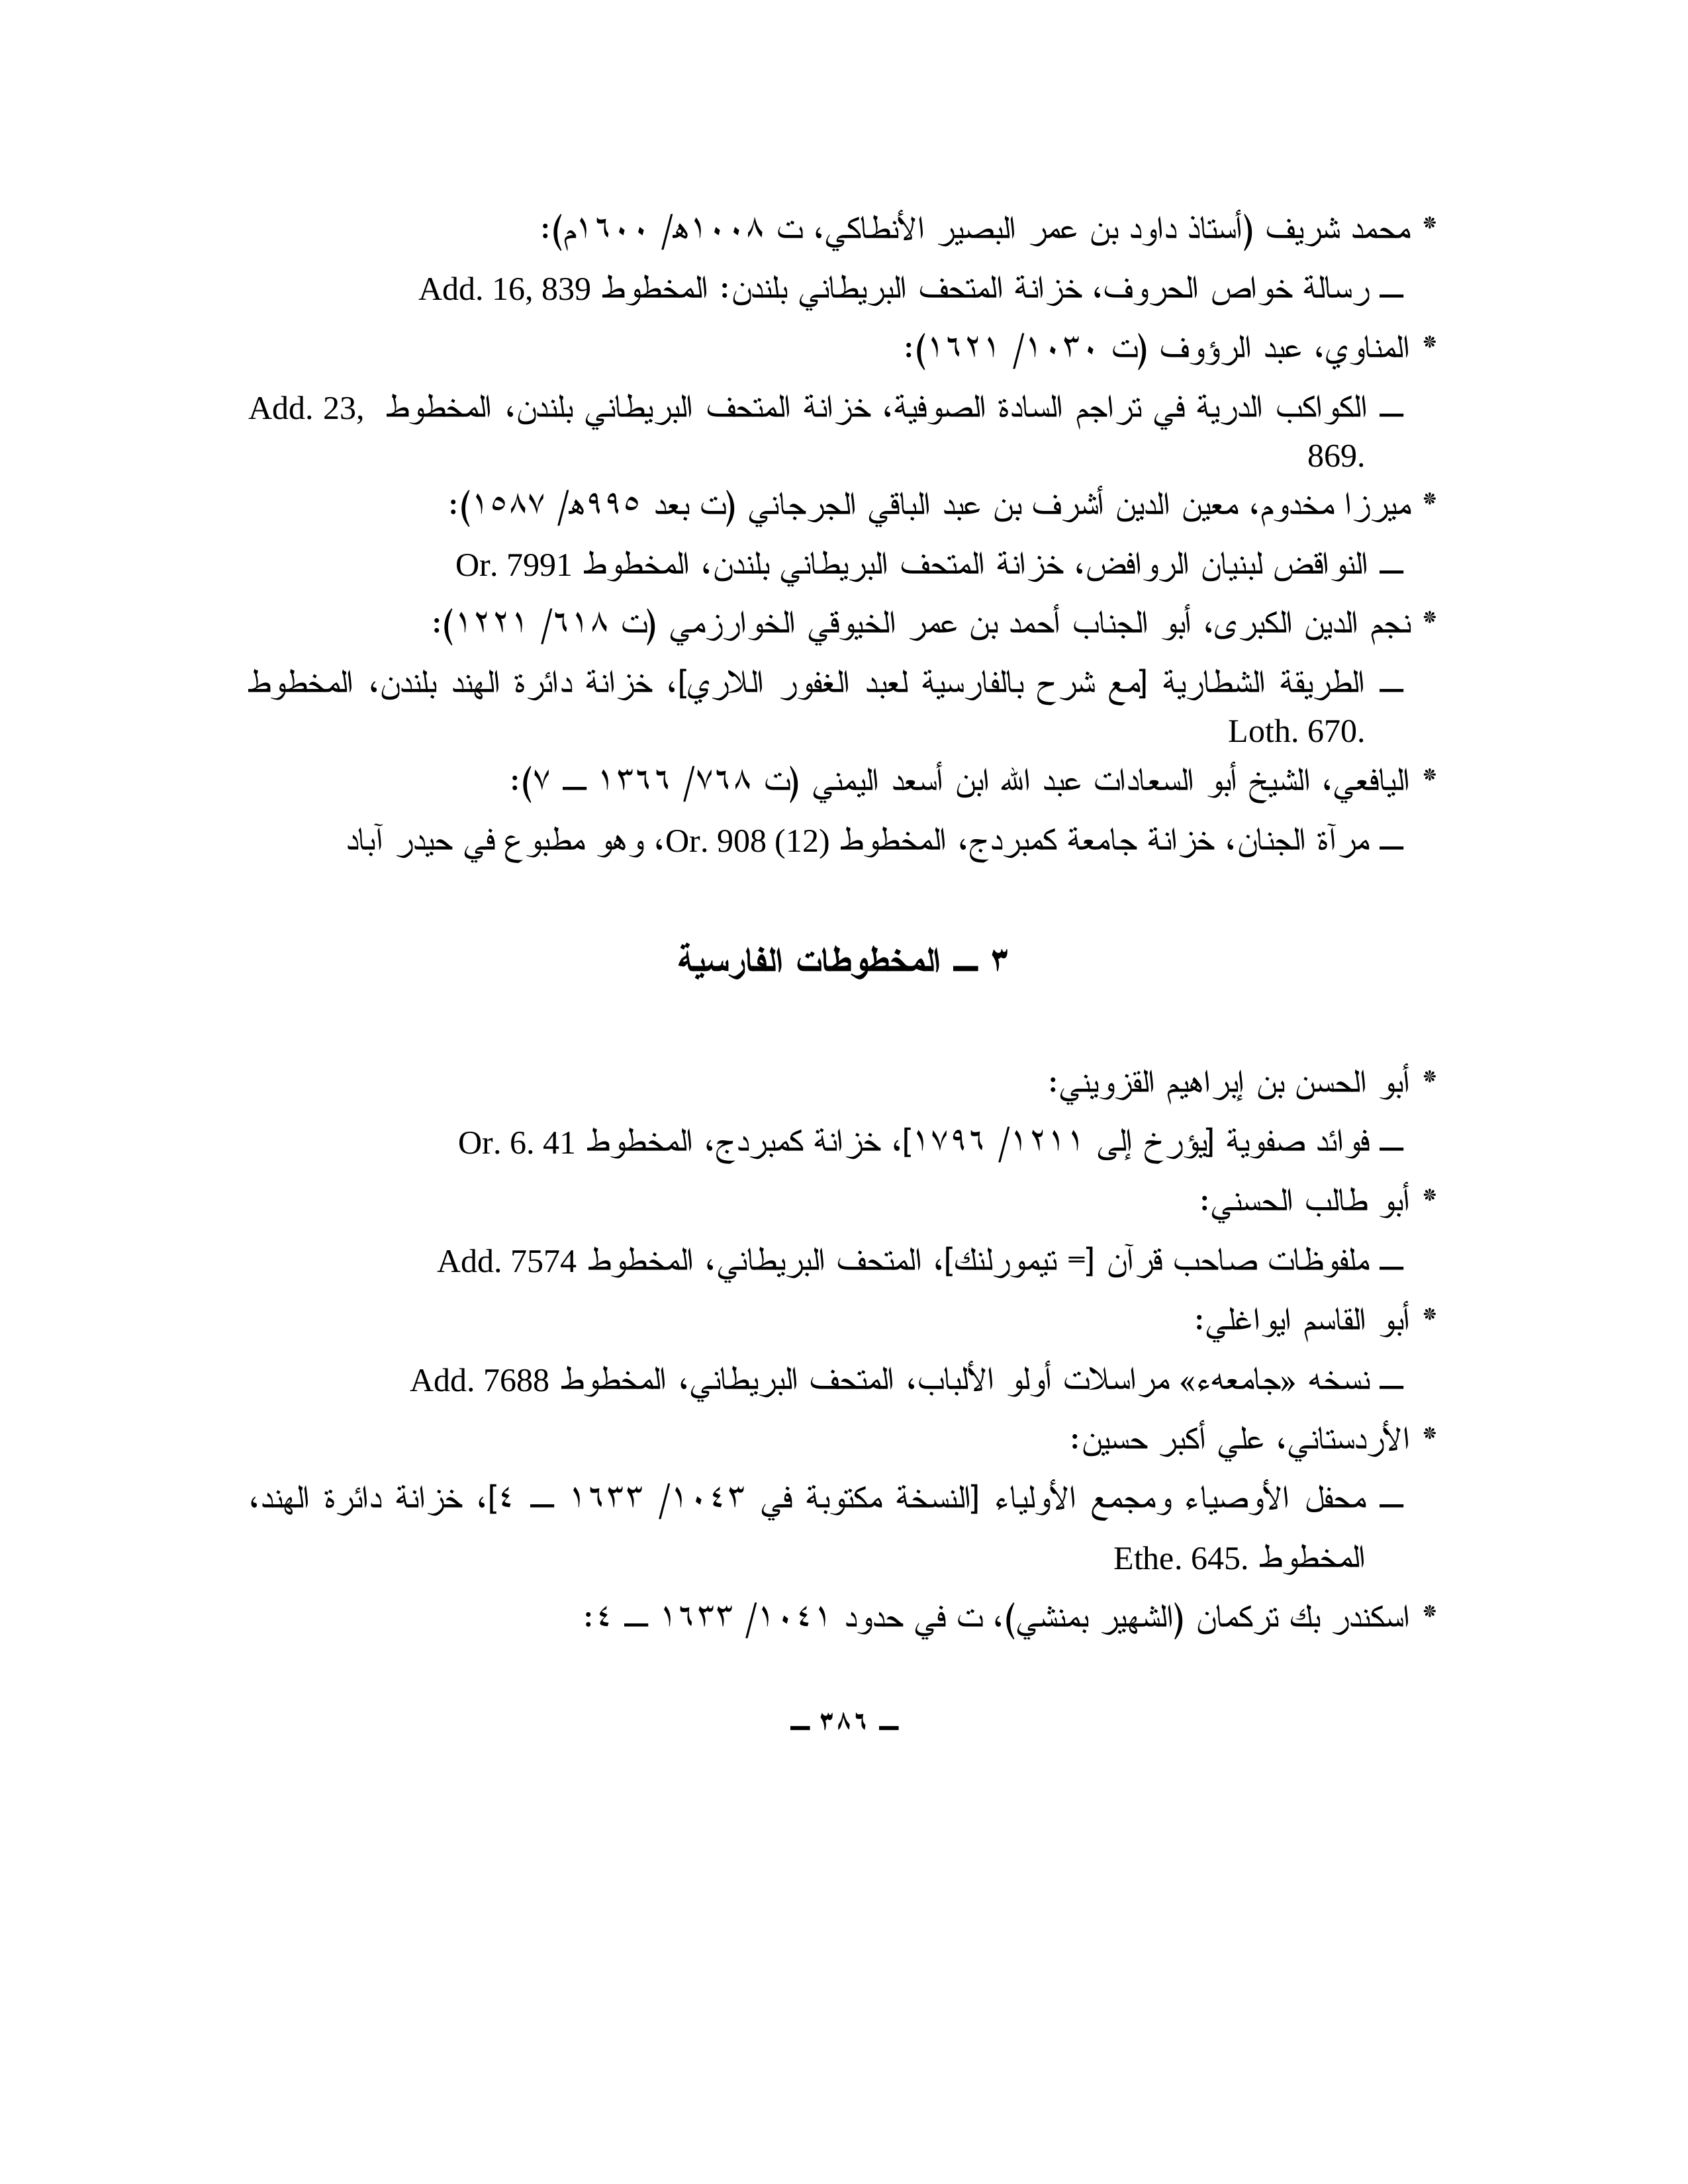 * محمد شريف (أستاذ داود بن عمر البصير الأنطاكي، ت ١٠٠٨ه/ ١٦٠٠م):
ـ رسالة خواص الحروف، خزانة المتحف البريطاني بلندن: المخطوط Add. 16, 839
* المناوي، عبد الرؤوف (ت ١٠٣٠/ ١٦٢١):
ـ الكواكب الدرية في تراجم السادة الصوفية، خزانة المتحف البريطاني بلندن، المخطوط Add. 23,
869.
* ميرزا مخدوم، معين الدين أشرف بن عبد الباقي الجرجاني (ت بعد ٩٩٥ه/ ١٥٨٧):
ـ النواقض لبنيان الروافض، خزانة المتحف البريطاني بلندن، المخطوط Or. 7991
* نجم الدين الكبرى، أبو الجناب أحمد بن عمر الخيوقي الخوارزمي (ت ٦١٨/ ١٢٢١):
ـ الطريقة الشطارية [مع شرح بالفارسية لعبد الغفور اللاري]، خزانة دائرة الهند بلندن، المخطوط
Loth. 670.
* اليافعي، الشيخ أبو السعادات عبد الله ابن أسعد اليمني (ت ٧٦٨/ ١٣٦٦ ـ ٧):
ـ مرآة الجنان، خزانة جامعة كمبردج، المخطوط Or. 908 (12)، وهو مطبوع في حيدر آباد
٣ ـ المخطوطات الفارسية
* أبو الحسن بن إبراهيم القزويني:
ـ فوائد صفوية [يؤرخ إلى ١٢١١/ ١٧٩٦]، خزانة كمبردج، المخطوط Or. 6. 41
* أبو طالب الحسني:
ـ ملفوظات صاحب قرآن [= تيمورلنك]، المتحف البريطاني، المخطوط Add. 7574
* أبو القاسم ايواغلي:
ـ نسخه «جامعهء» مراسلات أولو الألباب، المتحف البريطاني، المخطوط Add. 7688
* الأردستاني، علي أكبر حسين:
ـ محفل الأوصياء ومجمع الأولياء [النسخة مكتوبة في ١٠٤٣/ ١٦٣٣ ـ ٤]، خزانة دائرة الهند،
المخطوط Ethe. 645.
* اسكندر بك تركمان (الشهير بمنشي)، ت في حدود ١٠٤١/ ١٦٣٣ ـ ٤:
ـ ٣٨٦ ـ